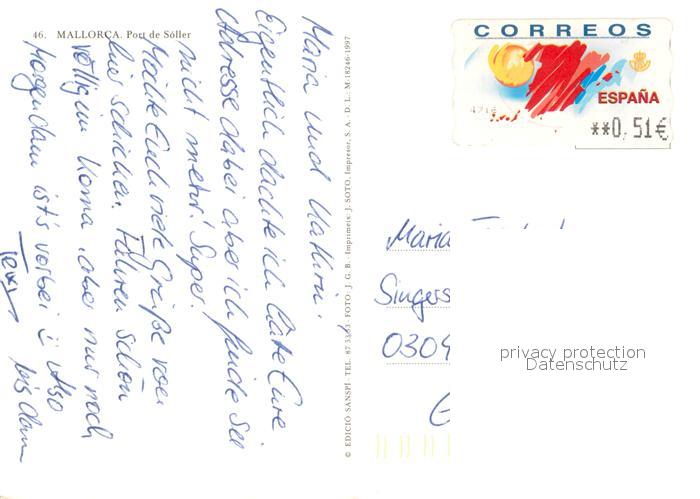 46. MALLORCA. Port de Sóller
Maria und Kathrin.
Eigentlich dachte ich hätte Eure
Adresse dabei aber ich finde sie
nicht mehr. Super.
Möchte Euch viele Grüße von
hier schicken. Fühlen schon
völlig im Koma. aber nur noch
Morgen dann ist's vorbei :( Also
bis dann
© EDICIO SANSPI · TEL. 87 33 63 · FOTO J. G. B. · Imprimeix: J. SOTO, Impresor, S. A. - D. L. - M-18246-1997
CORREOS
ESPAÑA
**0,51€
Maria
Singers
0304
privacy protection
Datenschutz